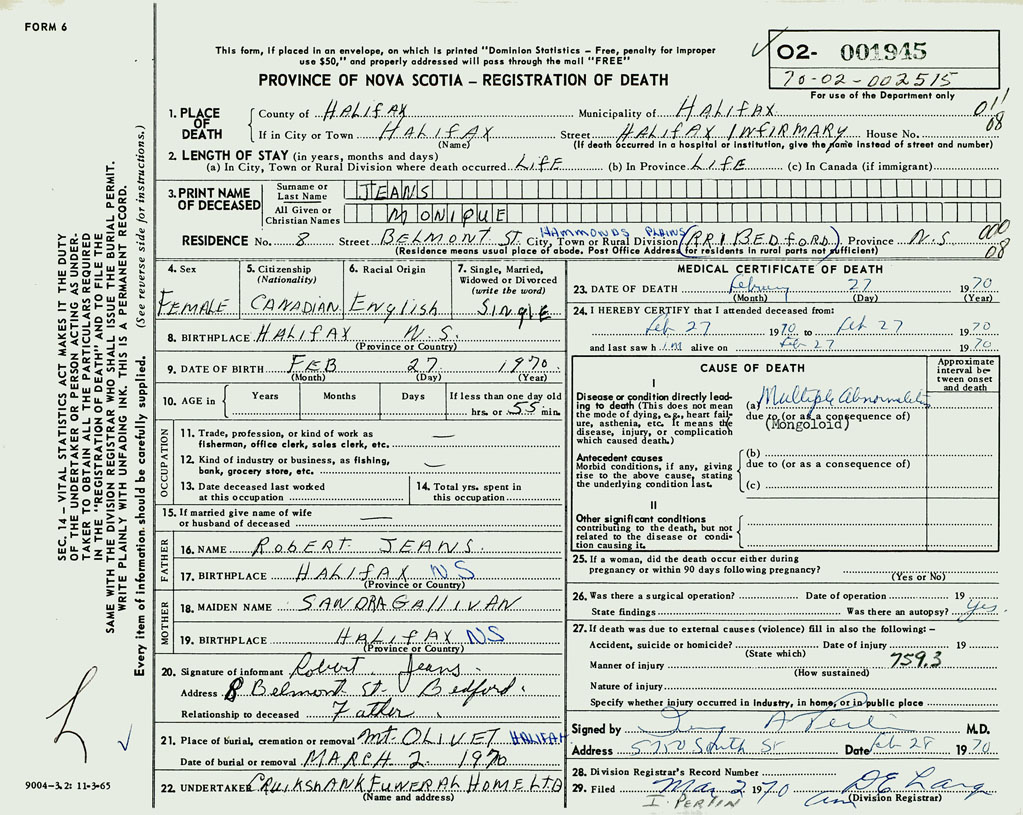 FORM 6
This form, if placed in an envelope, on which is printed "Dominion Statistics – Free, penalty for improper
use $50," and properly addressed will pass through the mail "FREE"
PROVINCE OF NOVA SCOTIA – REGISTRATION OF DEATH
✓ 02- 001945
70-02-002515
For use of the Department only
1. PLACE OF DEATH
County of HALIFAX Municipality of HALIFAX 011
If in City or Town HALIFAX Street HALIFAX INFIRMARY House No. 08
(Name) (If death occurred in a hospital or institution, give the name instead of street and number)
2. LENGTH OF STAY (in years, months and days)
(a) In City, Town or Rural Division where death occurred LIFE (b) In Province LIFE (c) In Canada (if immigrant)
3. PRINT NAME OF DECEASED
Surname or Last Name JEANS
All Given or Christian Names MONIQUE
HAMMONDS PLAINS
RESIDENCE No. 8 Street BELMONT ST. City, Town or Rural Division (RR1 BEDFORD) Province N.S. 000
(Residence means usual place of abode. Post Office Address for residents in rural parts not sufficient) 08
4. Sex FEMALE
5. Citizenship (Nationality) CANADIAN
6. Racial Origin English
7. Single, Married, Widowed or Divorced (write the word) SINGLE
8. BIRTHPLACE HALIFAX N.S.
(Province or Country)
9. DATE OF BIRTH FEB 27 1970
(Month) (Day) (Year)
10. AGE in Years Months Days If less than one day old
hrs. or 55 min.
OCCUPATION
11. Trade, profession, or kind of work as
fisherman, office clerk, sales clerk, etc. —
12. Kind of industry or business, as fishing,
bank, grocery store, etc. —
13. Date deceased last worked
at this occupation
14. Total yrs. spent in
this occupation
15. If married give name of wife
or husband of deceased —
FATHER
16. NAME ROBERT JEANS
17. BIRTHPLACE HALIFAX NS
(Province or Country)
MOTHER
18. MAIDEN NAME SANDRA GALLIVAN
19. BIRTHPLACE HALIFAX NS
(Province or Country)
20. Signature of informant Robert Jeans
Address 8 Belmont St. Bedford
Relationship to deceased Father
21. Place of burial, cremation or removal Mt. OLIVET HALIFAX
Date of burial or removal MARCH 2 1970
22. UNDERTAKER CRUIKSHANK FUNERAL HOME LTD
(Name and address)
MEDICAL CERTIFICATE OF DEATH
23. DATE OF DEATH February 27 1970
(Month) (Day) (Year)
24. I HEREBY CERTIFY that I attended deceased from:
Feb 27 1970 to Feb 27 1970
and last saw h im alive on Feb 27 1970
CAUSE OF DEATH
Approximate interval between onset and death
I
Disease or condition directly leading to death (This does not mean the mode of dying, e.g., heart failure, asthenia, etc. It means the disease, injury, or complication which caused death.)
(a) Multiple Abnormalities
due to (or as a consequence of)
(Mongoloid)
Antecedent causes
Morbid conditions, if any, giving rise to the above cause, stating the underlying condition last.
(b)
due to (or as a consequence of)
(c)
II
Other significant conditions
contributing to the death, but not related to the disease or condition causing it.
25. If a woman, did the death occur either during
pregnancy or within 90 days following pregnancy?
(Yes or No)
26. Was there a surgical operation? Date of operation 19
State findings Was there an autopsy? yes
27. If death was due to external causes (violence) fill in also the following: –
Accident, suicide or homicide? Date of injury 19
(State which) 759.3
Manner of injury
(How sustained)
Nature of injury
Specify whether injury occurred in industry, in home, or in public place
Signed by M.D.
Address 5750 South St Date Feb 28 1970
28. Division Registrar's Record Number
29. Filed Mar 2 1970
(Division Registrar)
SEC. 14 – VITAL STATISTICS ACT MAKES IT THE DUTY
OF THE UNDERTAKER OR PERSON ACTING AS UNDER-
TAKER TO OBTAIN ALL THE PARTICULARS REQUIRED
IN THE "REGISTRATION OF DEATH" AND TO FILE THE
SAME WITH THE DIVISION REGISTRAR WHO SHALL ISSUE THE BURIAL PERMIT.
WRITE PLAINLY WITH UNFADING INK. THIS IS A PERMANENT RECORD.
Every item of information should be carefully supplied. (See reverse side for instructions.)
✓
9004–3.2: 11-3-65